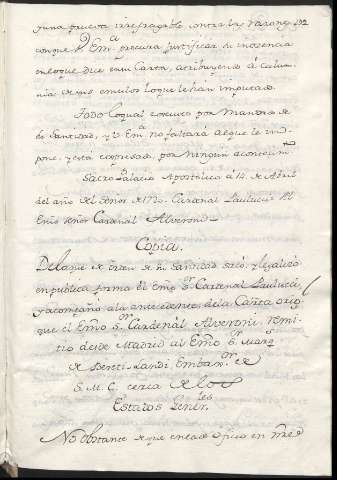 y una prueba irrefragable contra las razon.s 192
conque V. Em.a procura justificar su inocencia
en lo que dice en su Carta, atribuyendo à calum
nia de sus emulos lo que le han imputado.
Todo lo qual executo por Mandato de
su Santidad, y V. Em.a no faltará à lo que le im
pone, y está expresado, por Ningun
Sacro Palacio Apostolico à 14 de Abril
del año del señor de Cardenal Paulucci Al
Em̃o señor Cardenal Alveroni
Copia.
De la que de orden de su Santidad sacò, y legalizò
en publica forma el Em̃o S.or Cardenal Paulucci,
y acompañò à la antecedente, de la Carta orig
que el Em̃o S.or Cardenal Alveroni, remi
tiò desde Madrid al Em̃o S. Marq.s
de Bereti-Landi Embax.or de
S. M. C. cerca de los
Estados Gener.les
No obstante de que en cada oficio en